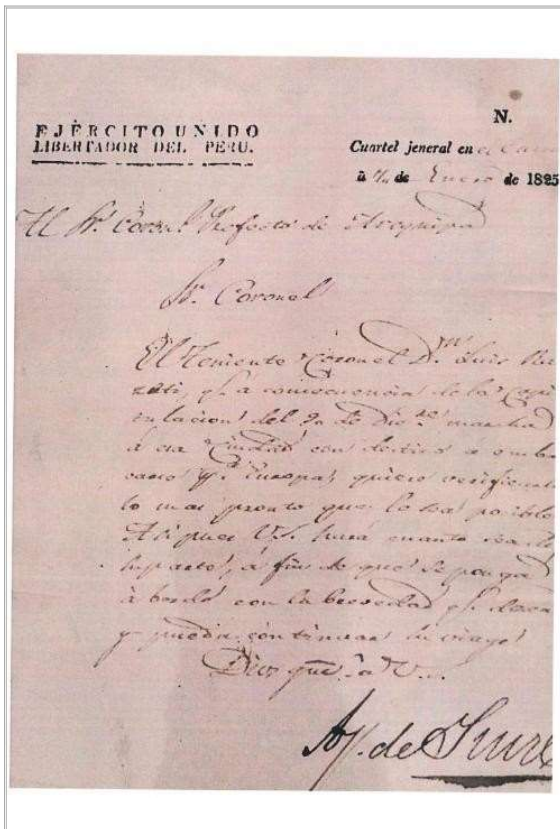 N.
EJÉRCITO UNIDO
LIBERTADOR DEL PERU.
Cuartel jeneral en el
à de Enero de 1825
Al Sr. Coronel Prefecto de Arequipa
Sr. Coronel
El Teniente Coronel D.n Luis
qe. a consecuencia de la Capi
tulacion del 9 de Dic.re marcha
á esa Ciudad con destino á embar
carse pa. Europa, quiere verificarlo
lo mas pronto que le sea posible
Asi pues V.S. hará cuanto sea de
su parte, á fin de que se ponga
à bordo con la brevedad qe. desea
y pueda continuar su viage
Dios gue. à V.S.
A. J. de Sucre